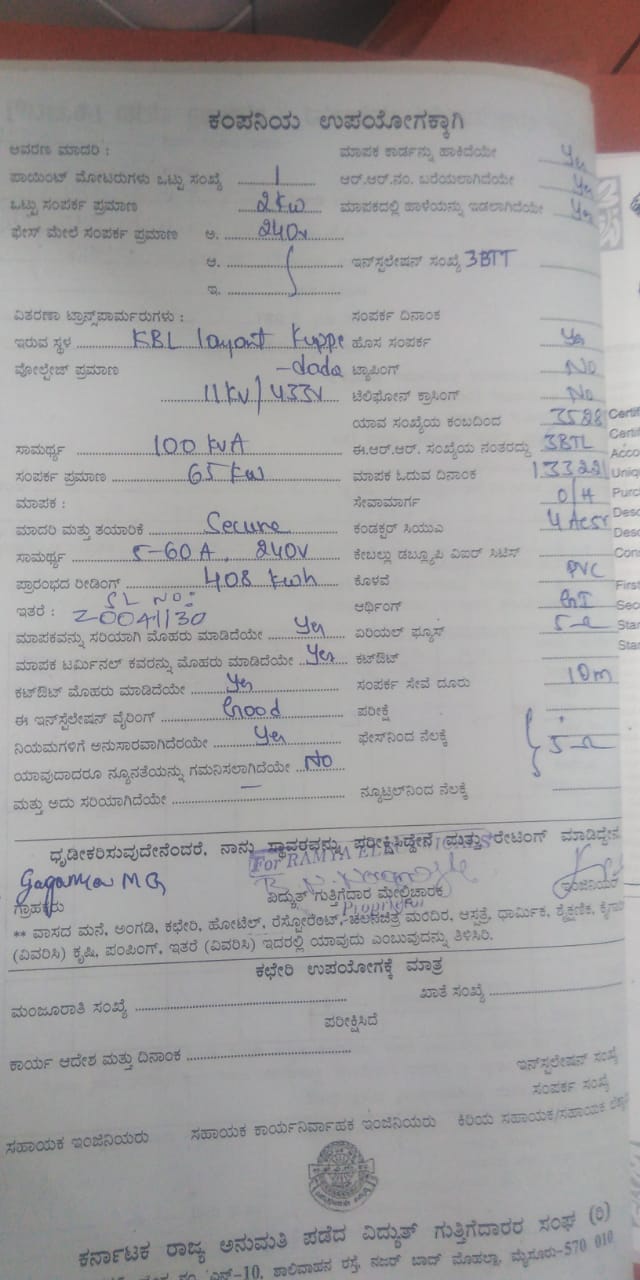 ಕಂಪನಿಯ ಉಪಯೋಗಕ್ಕಾಗಿ
ಆವರಣ ಮಾದರಿ : ಮಾಪಕ ಕಾರ್ಡನ್ನು ಹಾಕಿದೆಯೇ Yes
ಪಾಯಿಂಟ್ ಮೋಟರುಗಳು ಒಟ್ಟು ಸಂಖ್ಯೆ 1 ಆರ್.ಆರ್.ನಂ. ಬರೆಯಲಾಗಿದೆಯೇ Yes
ಒಟ್ಟು ಸಂಪರ್ಕ ಪ್ರಮಾಣ 2kw ಮಾಪಕದಲ್ಲಿ ಹಾಳೆಯನ್ನು ಇಡಲಾಗಿದೆಯೇ Yes
ಫೇಸ್ ಮೇಲೆ ಸಂಪರ್ಕ ಪ್ರಮಾಣ ಅ. 240v
ಆ. ಇನ್‌ಸ್ಟಲೇಷನ್ ಸಂಖ್ಯೆ 3BTT
ಇ.
ವಿತರಣಾ ಟ್ರಾನ್ಸ್‌ಪಾರ್ಮರುಗಳು : ಸಂಪರ್ಕ ದಿನಾಂಕ
ಇರುವ ಸ್ಥಳ KBL layout Kuppe ಹೊಸ ಸಂಪರ್ಕ Yes
ವೋಲ್ಟೇಜ್ ಪ್ರಮಾಣ -dada ಟ್ಯಾಪಿಂಗ್ No
11kv/433v ಟೆಲಿಫೋನ್ ಕ್ರಾಸಿಂಗ್ No
ಯಾವ ಸಂಖ್ಯೆಯ ಕಂಬದಿಂದ 3528
ಸಾಮರ್ಥ್ಯ 100 kvA ಈ.ಆರ್.ಆರ್. ಸಂಖ್ಯೆಯ ನಂತರದ್ದು 3BTL
ಸಂಪರ್ಕ ಪ್ರಮಾಣ 65 kw ಮಾಪಕ ಓದುವ ದಿನಾಂಕ 133221
ಮಾಪಕ : ಸೇವಾಮಾರ್ಗ O/H
ಮಾದರಿ ಮತ್ತು ತಯಾರಿಕೆ Secure ಕಂಡಕ್ಟರ್ ಸಿಯುಎ 4 Acsr
ಸಾಮರ್ಥ್ಯ 5-60A, 240v ಕೇಬಲ್ಲು ಡಬ್ಲ್ಯೂಪಿ ವಿಐರ್ ಸಿಟಿಸ್
ಪ್ರಾರಂಭದ ರೀಡಿಂಗ್ 408 kwh ಕೊಳವೆ PVC
SL No:
ಇತರೆ : Z0041130 ಆರ್ಥಿಂಗ್ GI
ಮಾಪಕವನ್ನು ಸರಿಯಾಗಿ ಮೊಹರು ಮಾಡಿದೆಯೇ Yes ಏರಿಯಲ್ ಫ್ಯೂಸ್ 5-Ω
ಮಾಪಕ ಟರ್ಮಿನಲ್ ಕವರನ್ನು ಮೊಹರು ಮಾಡಿದೆಯೇ Yes ಕಟ್‌ಔಟ್
ಕಟ್‌ಔಟ್ ಮೊಹರು ಮಾಡಿದೆಯೇ Yes ಸಂಪರ್ಕ ಸೇವೆ ದೂರು 10m
ಈ ಇನ್‌ಸ್ಟಲೇಷನ್ ವೈರಿಂಗ್ Good ಪರೀಕ್ಷೆ
ನಿಯಮಗಳಿಗೆ ಅನುಸಾರವಾಗಿದೆರಯೇ Yes ಫೇಸ್‌ನಿಂದ ನೆಲಕ್ಕೆ 5-Ω
ಯಾವುದಾದರೂ ನ್ಯೂನತೆಯನ್ನು ಗಮನಿಸಲಾಗಿದೆಯೇ No
ಮತ್ತು ಅದು ಸರಿಯಾಗಿದೆಯೇ — ನ್ಯೂಟ್ರಲ್‌ನಿಂದ ನೆಲಕ್ಕೆ
ಧೃಡೀಕರಿಸುವುದೇನೆಂದರೆ, ನಾನು ಸ್ಥಾವರವನ್ನು ಪರೀಕ್ಷಿಸಿದ್ದೇನೆ ಮತ್ತು ರೇಟಿಂಗ್ ಮಾಡಿದ್ದೇನ
For RAMYA
Gaganya M G
ಗ್ರಾಹಕರು ವಿದ್ಯುತ್ ಗುತ್ತಿಗೆದಾರ ಮೇಲ್ವಿಚಾರಕ ಇಂಜಿನಿಯರ್
Proprietor
** ವಾಸದ ಮನೆ, ಅಂಗಡಿ, ಕಛೇರಿ, ಹೋಟೆಲ್, ರೆಸ್ಟೋರೆಂಟ್, ಚಲನಚಿತ್ರ ಮಂದಿರ, ಆಸ್ಪತ್ರೆ, ಧಾರ್ಮಿಕ, ಶೈಕ್ಷಣಿಕ, ಕೈಗಾರಿ
(ವಿವರಿಸಿ) ಕೃಷಿ, ಪಂಪಿಂಗ್, ಇತರೆ (ವಿವರಿಸಿ) ಇದರಲ್ಲಿ ಯಾವುದು ಎಂಬುವುದನ್ನು ತಿಳಿಸಿರಿ.
ಕಛೇರಿ ಉಪಯೋಗಕ್ಕೆ ಮಾತ್ರ
ಮಂಜೂರಾತಿ ಸಂಖ್ಯೆ ಖಾತೆ ಸಂಖ್ಯೆ
ಪರೀಕ್ಷಿಸಿದೆ
ಕಾರ್ಯ ಆದೇಶ ಮತ್ತು ದಿನಾಂಕ ಇನ್‌ಸ್ಟಲೇಷನ್ ಸಂಖ್ಯೆ
ಸಂಪರ್ಕ ಸಂಖ್ಯೆ
ಸಹಾಯಕ ಇಂಜಿನಿಯರು ಸಹಾಯಕ ಕಾರ್ಯನಿರ್ವಾಹಕ ಇಂಜಿನಿಯರು ಕಿರಿಯ ಸಹಾಯಕ/ಸಹಾಯಕ
ಕರ್ನಾಟಕ ರಾಜ್ಯ ಅನುಮತಿ ಪಡೆದ ವಿದ್ಯುತ್ ಗುತ್ತಿಗೆದಾರರ ಸಂಘ (ರಿ)
ಎನ್-10, ಶಾಲಿವಾಹನ ರಸ್ತೆ, ನಜರ್ ಬಾದ್ ಮೊಹಲ್ಲಾ, ಮೈಸೂರು-570 010
Certif
Certif
Acco
Uniq
Purc
Desc
Desc
Con
First
Sec
Star
Star